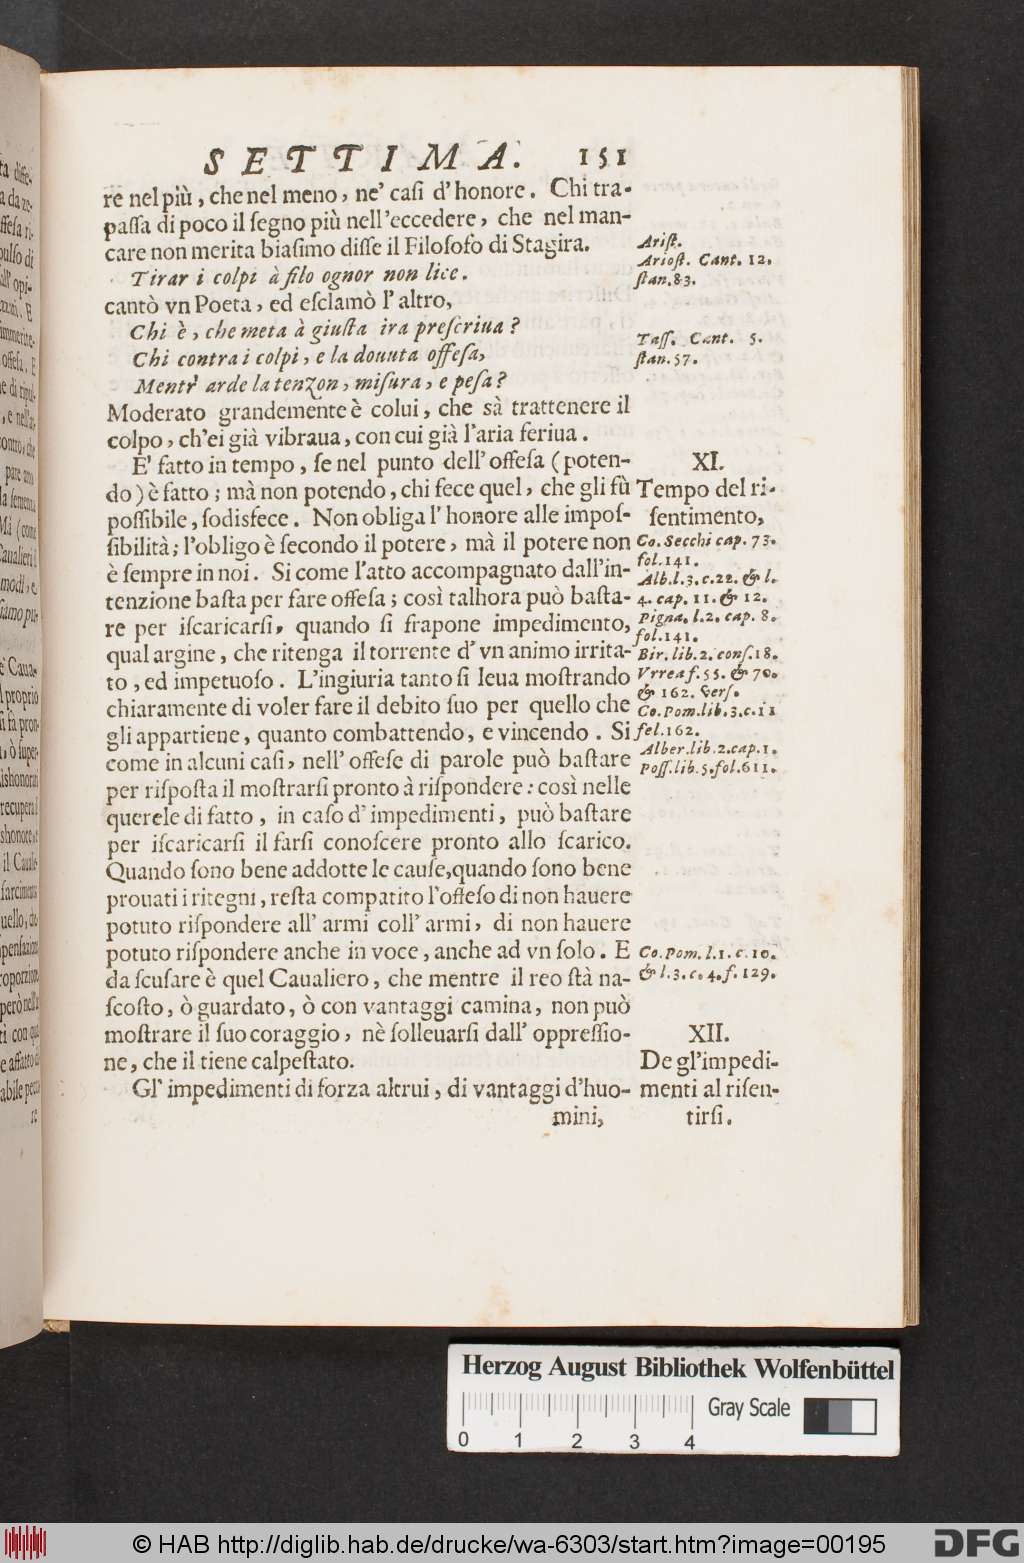 SETTIMA. 151
re nel più, che nel meno, ne' caſi d'honore. Chi tra-
paſſa di poco il ſegno più nell'eccedere, che nel man-
care non merita biaſimo diſſe il Filoſofo di Stagira.
Ariſt.
Tirar i colpi à filo ognor non lice.
Arioſt. Cant. 12.
ſtan.83.
cantò vn Poeta, ed eſclamò l'altro,
Chi è, che meta à giuſta ira preſcriua?
Taſſ. Cant. 5.
ſtan.57.
Chi contra i colpi, e la douuta offeſa,
Mentr' arde la tenzon, miſura, e peſa?
Moderato grandemente è colui, che sà trattenere il
colpo, ch'ei già vibraua, con cui già l'aria feriua.
XI.
Tempo del ri-
ſentimento,
E' fatto in tempo, ſe nel punto dell'offeſa (poten-
do) è fatto; mà non potendo, chi fece quel, che gli fù
poſſibile, ſodisfece. Non obliga l'honore alle impoſ-
ſibilità; l'obligo è ſecondo il potere, mà il potere non
è ſempre in noi. Si come l'atto accompagnato dall'in-
tenzione baſta per fare offeſa; così talhora può baſta-
re per iſcaricarſi, quando ſi frapone impedimento,
qual argine, che ritenga il torrente d'vn animo irrita-
to, ed impetuoſo. L'ingiuria tanto ſi leua moſtrando
chiaramente di voler fare il debito ſuo per quello che
gli appartiene, quanto combattendo, e vincendo. Si
come in alcuni caſi, nell'offeſe di parole può baſtare
per riſpoſta il moſtrarſi pronto à riſpondere: così nelle
querele di fatto, in caſo d'impedimenti, può baſtare
per iſcaricarſi il farſi conoſcere pronto allo ſcarico.
Quando ſono bene addotte le cauſe,quando ſono bene
prouati i ritegni, reſta compatito l'offeſo di non hauere
potuto riſpondere all'armi coll'armi, di non hauere
potuto riſpondere anche in voce, anche ad vn ſolo. E
da ſcuſare è quel Caualiero, che mentre il reo ſtà na-
ſcoſto, ò guardato, ò con vantaggi camina, non può
moſtrare il ſuo coraggio, nè ſolleuarſi dall'oppreſſio-
ne, che il tiene calpeſtato.
Co. Secchi cap. 73.
fol.141.
Alb.l.3.c.22. & l.
4. cap. 11. & 12.
Pigna. l.2. cap. 8.
fol.141.
Bir. lib. 2. conſ.18.
Vrrea f. 55. & 70.
& 162. verſ.
Co. Pom. lib. 3. c. 11
fel.162.
Alber.lib.2.cap.1.
Poſſ.lib.5.fol.611.
Co. Pom. l.1. c. 10.
& l.3. c. 4. f. 129.
XII.
De gl'impedi-
menti al riſen-
tirſi.
Gl'impedimenti di forza altrui, di vantaggi d'huo-
mini,
ta diffe-
a da ze-
pulſo di
all' opi-
offeſa. E
pare ami
la ſentenza
Mà (come
Caualieri
modi, e
proprio
recupera
il Caual-
re
Herzog August Bibliothek Wolfenbüttel
Gray Scale
0 1 2 3 4
© HAB http://diglib.hab.de/drucke/wa-6303/start.htm?image=00195
DFG